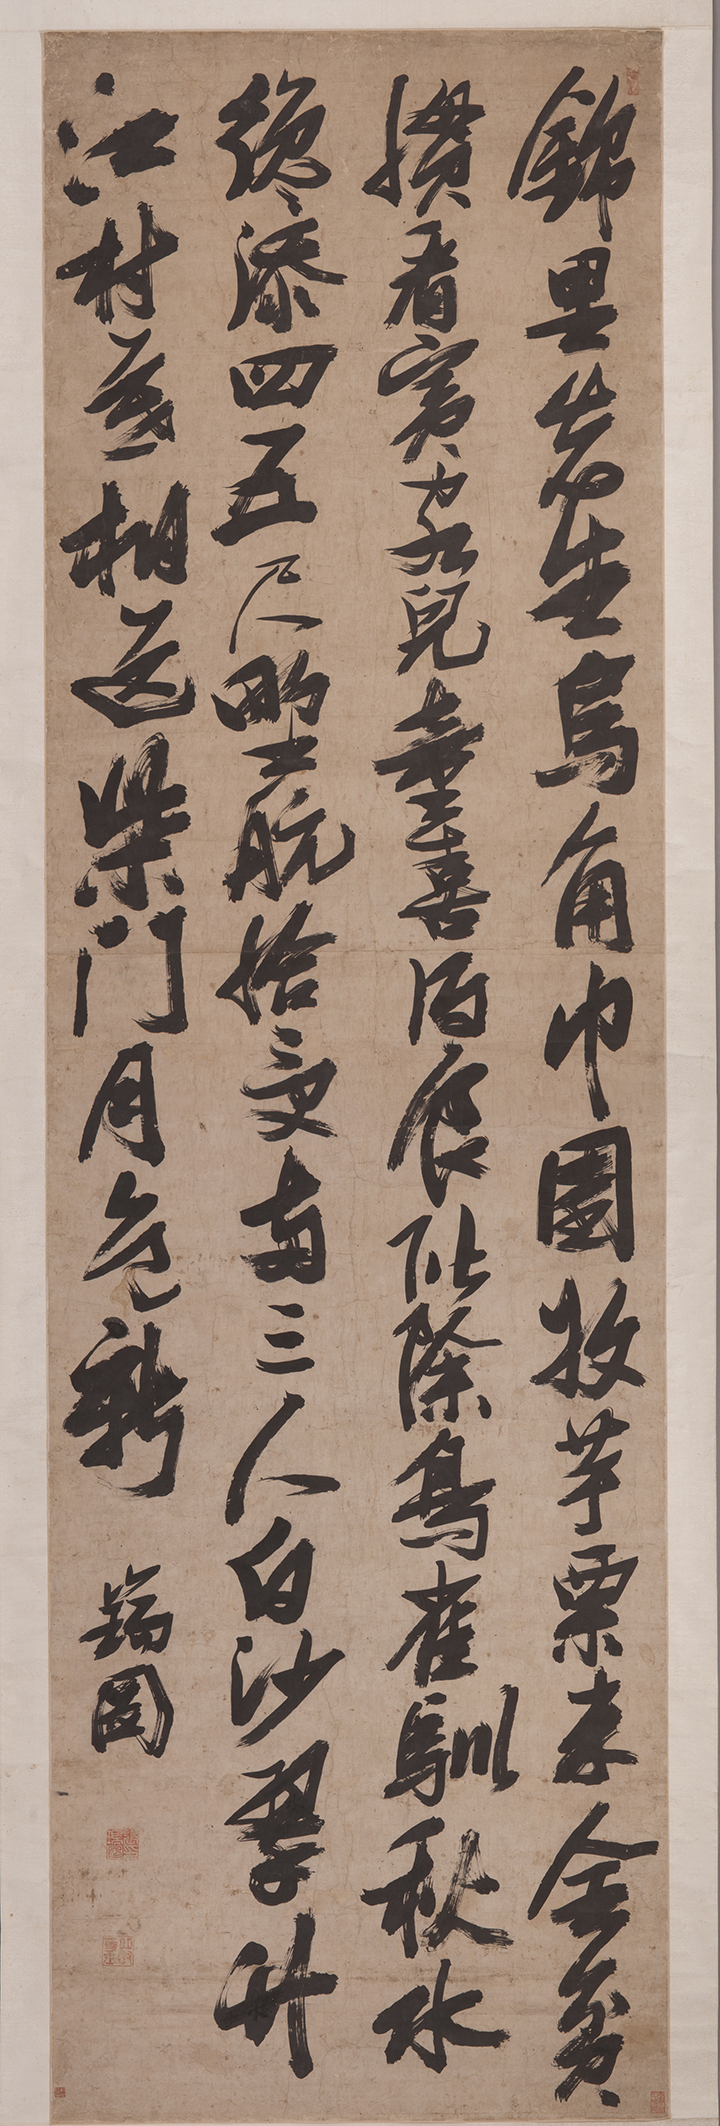 錦里先生烏角巾園收芋栗未全貧
慣看賓客兒童喜得食階除鳥雀馴秋水
纔添四五尺野航恰受兩三人白沙翠竹
江村暮相送柴門月色新
瑞圖